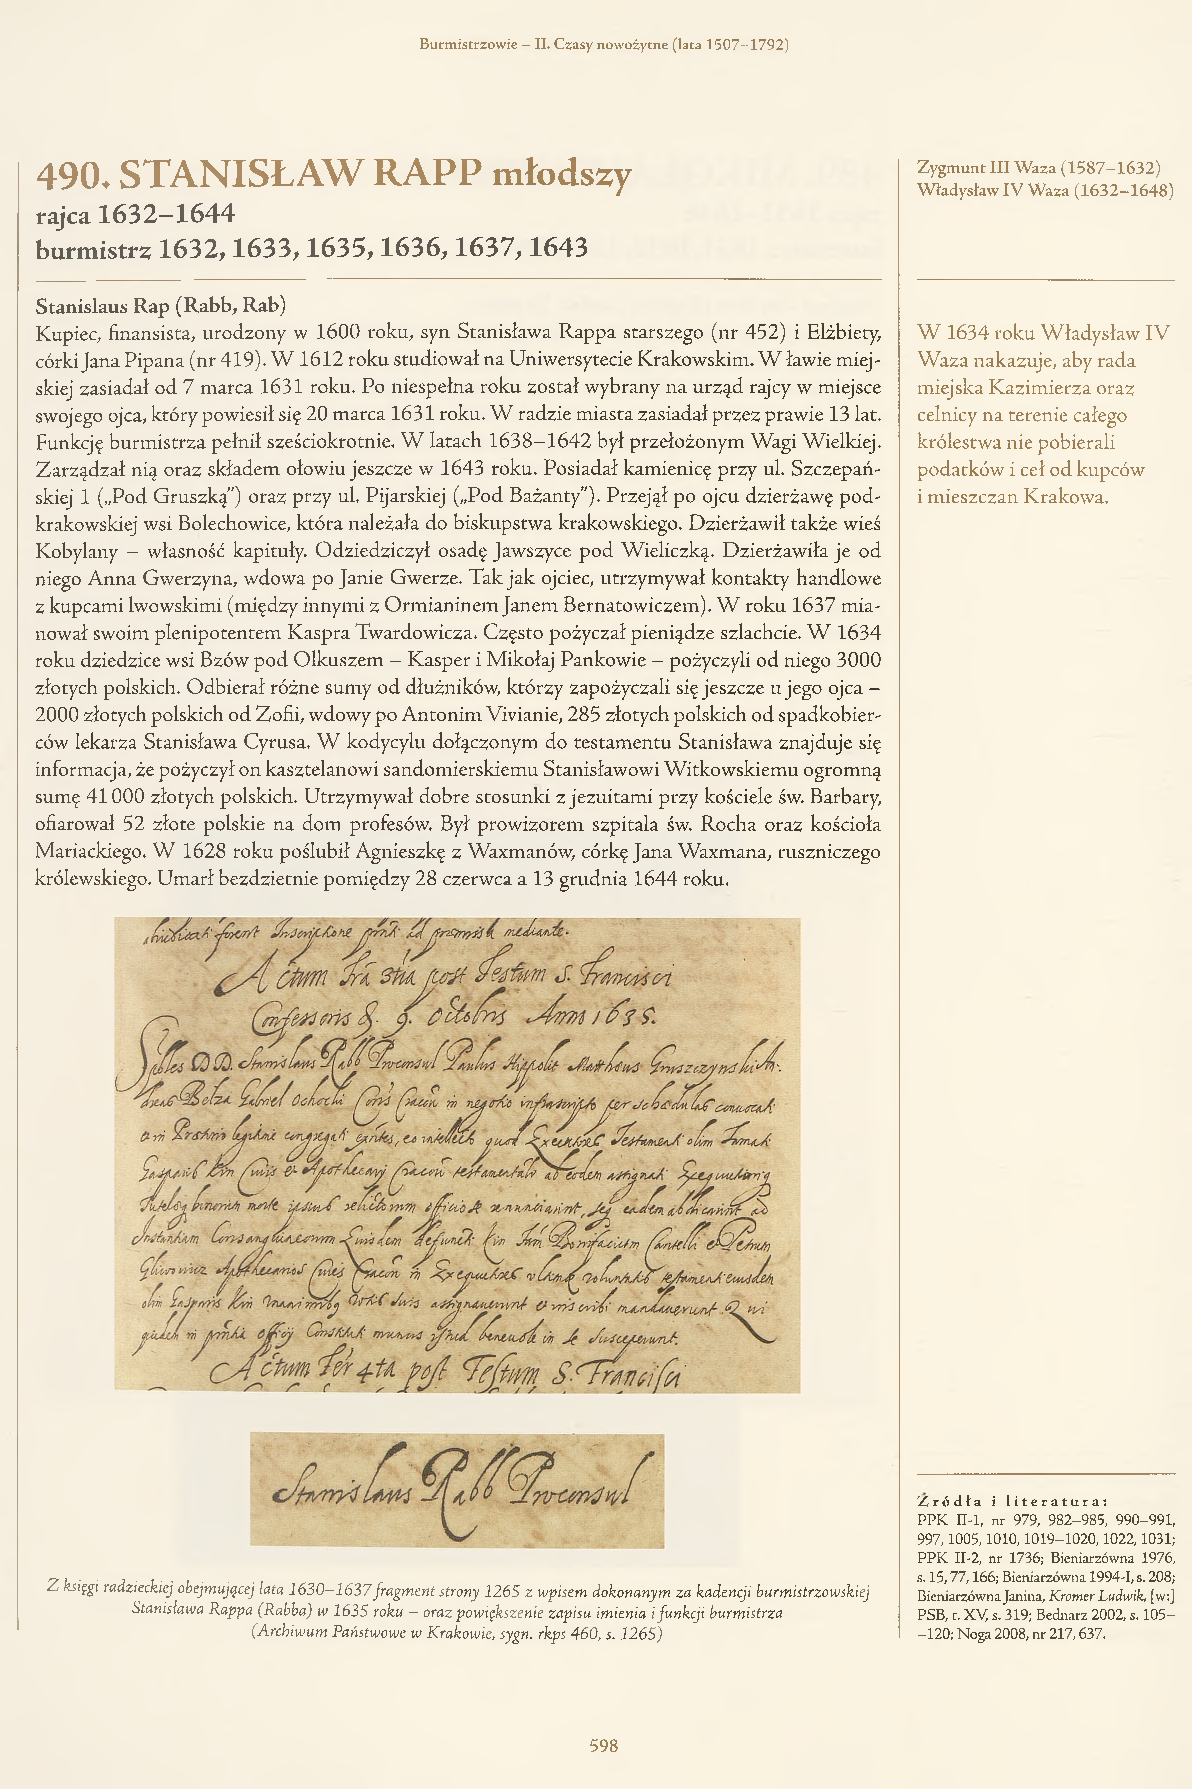 Burmistrzowie – II. Czasy nowożytne (lata 1507–1792)
490. STANISŁAW RAPP młodszy
rajca 1632–1644
burmistrz 1632, 1633, 1635, 1636, 1637, 1643
Stanislaus Rap (Rabb, Rab)
Kupiec, finansista, urodzony w 1600 roku, syn Stanisława Rappa starszego (nr 452) i Elżbiety,
córki Jana Pipana (nr 419). W 1612 roku studiował na Uniwersytecie Krakowskim. W ławie miej-
skiej zasiadał od 7 marca 1631 roku. Po niespełna roku został wybrany na urząd rajcy w miejsce
swojego ojca, który powiesił się 20 marca 1631 roku. W radzie miasta zasiadał przez prawie 13 lat.
Funkcję burmistrza pełnił sześciokrotnie. W latach 1638–1642 był przełożonym Wagi Wielkiej.
Zarządzał nią oraz składem ołowiu jeszcze w 1643 roku. Posiadał kamienicę przy ul. Szczepań-
skiej 1 („Pod Gruszką") oraz przy ul. Pijarskiej („Pod Bażanty"). Przejął po ojcu dzierżawę pod-
krakowskiej wsi Bolechowice, która należała do biskupstwa krakowskiego. Dzierżawił także wieś
Kobylany – własność kapituły. Odziedziczył osadę Jawszyce pod Wieliczką. Dzierżawiła je od
niego Anna Gwerzyna, wdowa po Janie Gwerze. Tak jak ojciec, utrzymywał kontakty handlowe
z kupcami lwowskimi (między innymi z Ormianinem Janem Bernatowiczem). W roku 1637 mia-
nował swoim plenipotentem Kaspra Twardowicza. Często pożyczał pieniądze szlachcie. W 1634
roku dziedzice wsi Bzów pod Olkuszem – Kasper i Mikołaj Pankowie – pożyczyli od niego 3000
złotych polskich. Odbierał różne sumy od dłużników, którzy zapożyczali się jeszcze u jego ojca –
2000 złotych polskich od Zofii, wdowy po Antonim Vivianie, 285 złotych polskich od spadkobier-
ców lekarza Stanisława Cyrusa. W kodycylu dołączonym do testamentu Stanisława znajduje się
informacja, że pożyczył on kasztelanowi sandomierskiemu Stanisławowi Witkowskiemu ogromną
sumę 41 000 złotych polskich. Utrzymywał dobre stosunki z jezuitami przy kościele św. Barbary,
ofiarował 52 złote polskie na dom profesów. Był prowizorem szpitala św. Rocha oraz kościoła
Mariackiego. W 1628 roku poślubił Agnieszkę z Waxmanów, córkę Jana Waxmana, ruszniczego
królewskiego. Umarł bezdzietnie pomiędzy 28 czerwca a 13 grudnia 1644 roku.
Zygmunt III Waza (1587–1632)
Władysław IV Waza (1632–1648)
W 1634 roku Władysław IV
Waza nakazuje, aby rada
miejska Kazimierza oraz
celnicy na terenie całego
królestwa nie pobierali
podatków i ceł od kupców
i mieszczan Krakowa.
Actum post Festum S. Francisci
Confessoris 9. Octobris Anno 1635.
Stanislaus Rabb Proconsul Paulus Hippolit Mattheus Gruszczynski
Belza Gabriel Ochocki in per
Testamenti olim
Gasparis Kin et
officio
Petrum
in
olim Gasparis Kin mandaverunt
in munus in se susceperunt.
Actum 4ta post Festum S. Francisci
Stanislaus Rabb Proconsul
Z księgi radzieckiej obejmującej lata 1630–1637 fragment strony 1265 z wpisem dokonanym za kadencji burmistrzowskiej
Stanisława Rappa (Rabba) w 1635 roku – oraz powiększenie zapisu imienia i funkcji burmistrza
(Archiwum Państwowe w Krakowie, sygn. rkps 460, s. 1265)
Źródła i literatura:
PPK II-1, nr 979, 982–985, 990–991,
997, 1005, 1010, 1019–1020, 1022, 1031;
PPK II-2, nr 1736; Bieniarzówna 1976,
s. 15, 77, 166; Bieniarzówna 1994-I, s. 208;
Bieniarzówna Janina, Kromer Ludwik, [w:]
PSB, t. XV, s. 319; Bednarz 2002, s. 105–
–120; Noga 2008, nr 217, 637.
598